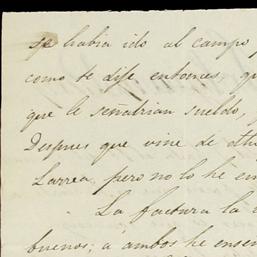 se había ido al campo
como te dije entonces, q
que le señalrian sueldo,
Despues que vine de
Larrea, pero no lo he en
La factura la
buenos; a ambos he ensen